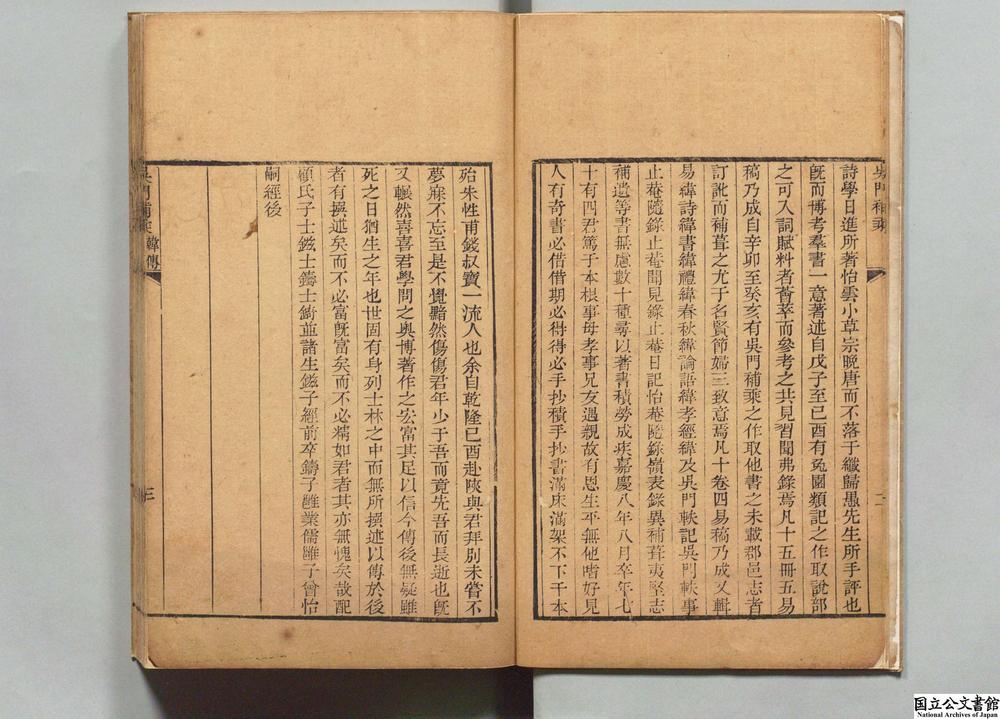 吳門補乘
二
詩學日進所著怡雲小草宗晩唐而不落于纖歸愚先生所手評也
旣而博考羣書一意著述自戊子至己酉有兔園類記之作取說部
之可入詞賦料者薈萃而參考之共見習聞弗錄焉凡十五冊五易
稿乃成自辛卯至癸亥有吳門補乘之作取他書之未載郡邑志者
訂訛而補葺之尤于名賢節婦三致意焉凡十卷四易稿乃成又輯
易緯詩緯書緯禮緯春秋緯論語緯孝經緯及吳門軼記吳門軼事
止菴隨錄止菴聞見錄止菴日記怡菴隨錄嶺表錄異補葺夷堅志
補遺等書無慮數十種尋以著書積勞成疾嘉慶八年八月卒年七
十有四君篤于本根事母孝事兄友遇親故有恩生平無他嗜好見
人有奇書必借借期必得得必手抄積手抄書滿床滿架不下千本
殆朱性甫錢叔寶一流人也余自乾隆己酉赴陝與君拜別未嘗不
夢寐不忘至是不覺黯然傷傷君年少于吾而竟先吾而長逝也旣
又囅然喜喜君學問之奥博著作之宏富其足以信今傳後無疑雖
死之日猶生之年也世固有身列士林之中而無所撰述以傳於後
者有撰述矣而不必富旣富矣而不必精如君者其亦無愧矣哉配
顧氏子士鎡士鑄士錡並諸生鎡子經前卒鑄子雝業儒雝子曾怡
嗣經後
吳門補乘 韓傳
三
国立公文書館
National Archives of Japan